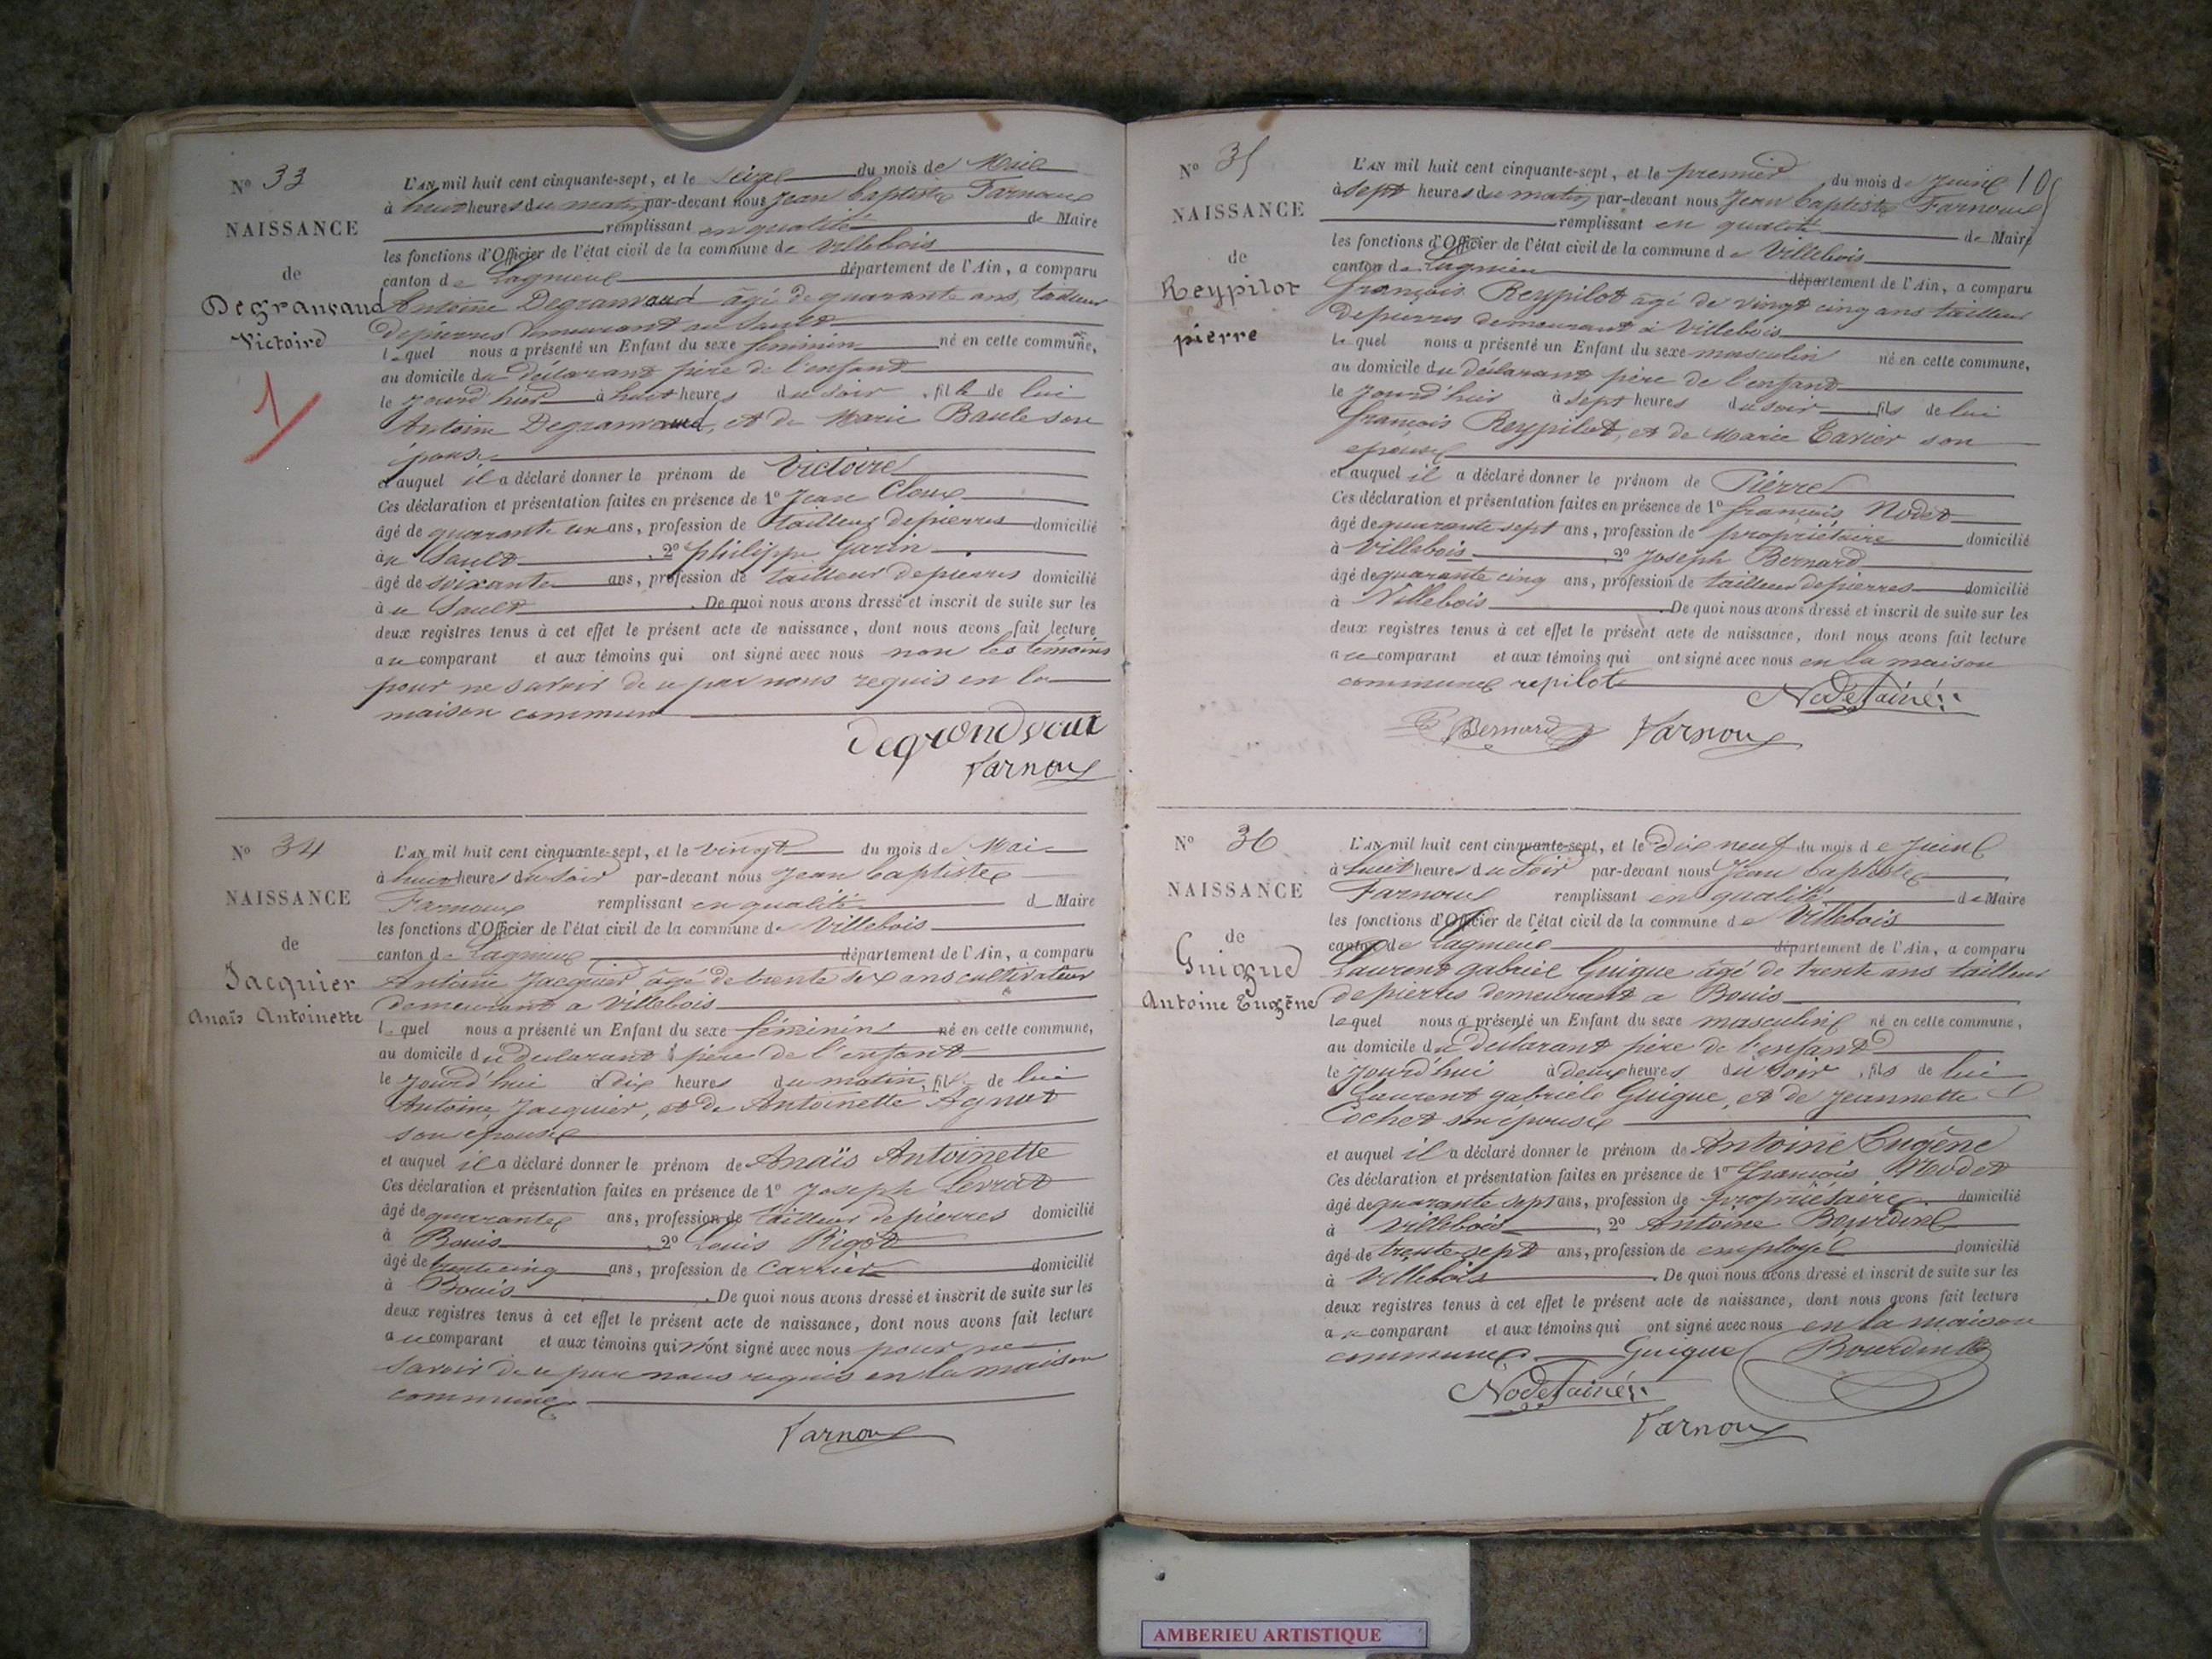 N° 33
NAISSANCE
de
Degranvaud
Victoire
1
L'AN mil huit cent cinquante-sept, et le seize du mois de Mai
à huit heures du matin par-devant nous Jean Baptiste Varnoux
remplissant en qualité de Maire
les fonctions d'Officier de l'état civil de la commune de Villebois
canton de Lagnieux département de l'Ain, a comparu
Antoine Degranvaud âgé de quarante ans, tailleur
de pierres demeurant au Sault
lequel nous a présenté un Enfant du sexe féminin né en cette commune,
au domicile du déclarant père de l'enfant
le jourd'hier à huit heures du soir fille de lui
Antoine Degranvaud, et de Marie Baule son
épouse
et auquel il a déclaré donner le prénom de Victoire
Ces déclaration et présentation faites en présence de 1° Jean Cloux
âgé de quarante un ans, profession de tailleur de pierres domicilié
au Sault, 2° philippe Garin
âgé de soixante ans, profession de tailleur de pierres domicilié
au Sault. De quoi nous avons dressé et inscrit de suite sur les
deux registres tenus à cet effet le présent acte de naissance, dont nous avons fait lecture
au comparant et aux témoins qui ont signé avec nous non les témoins
pour ne savoir de ce par nous requis en la
maison commune
degrondvaux
Varnoux
N° 34
NAISSANCE
de
Jacquier
Anaïs Antoinette
L'AN mil huit cent cinquante-sept, et le vingt du mois de Mai
à huit heures du soir par-devant nous Jean Baptiste
Varnoux remplissant en qualité d Maire
les fonctions d'Officier de l'état civil de la commune de Villebois
canton de Lagnieux département de l'Ain, a comparu
Antoine Jacquier âgé de trente six ans cultivateur
demeurant a Villebois
lequel nous a présenté un Enfant du sexe féminin né en cette commune,
au domicile du déclarant père de l'enfant
le jourd'hui à dix heures du matin, fil de lui
Antoine Jacquier, et de Antoinette Agnot
son épouse
et auquel il a déclaré donner le prénom de Anaïs Antoinette
Ces déclaration et présentation faites en présence de 1° Joseph Levrat
âgé de quarante ans, profession de tailleur de pierres domicilié
à Bouis, 2° Louis Rigot
âgé de trente cinq ans, profession de carrier domicilié
à Bouis. De quoi nous avons dressé et inscrit de suite sur les
deux registres tenus à cet effet le présent acte de naissance, dont nous avons fait lecture
au comparant et aux témoins qui n'ont signé avec nous pour ne
savoir de ce par nous requis en la maison
commune
Varnoux
N° 35
NAISSANCE
de
Reypilot
pierre
105
L'AN mil huit cent cinquante-sept, et le premier du mois de Juin
à sept heures du matin par-devant nous Jean Baptiste Varnoux
remplissant en qualité de Maire
les fonctions d'Officier de l'état civil de la commune de Villebois
canton de Lagnieu département de l'Ain, a comparu
françois Reypilot âgé de vingt cinq ans tailleur
de pierres demeurant à Villebois
lequel nous a présenté un Enfant du sexe masculin né en cette commune,
au domicile du déclarant père de l'enfant
le jourd'hier à sept heures du soir fils de lui
françois Reypilot, et de Marie Tavier son
épouse
et auquel il a déclaré donner le prénom de Pierre
Ces déclaration et présentation faites en présence de 1° françois Nodet
âgé de quarante sept ans, profession de propriétaire domicilié
à Villebois 2° Joseph Bernard
âgé de quarante cinq ans, profession de tailleur de pierres domicilié
à Villebois. De quoi nous avons dressé et inscrit de suite sur les
deux registres tenus à cet effet le présent acte de naissance, dont nous avons fait lecture
au comparant et aux témoins qui ont signé avec nous en la maison
commune repilot
Nodet ainé
Bernard Varnoux
N° 36
NAISSANCE
de
Guigue
Antoine Eugène
L'AN mil huit cent cinquante-sept, et le dix neuf du mois de Juin
à huit heures du Soir par-devant nous Jean baptiste
Varnoux remplissant en qualité de Maire
les fonctions d'Officier de l'état civil de la commune de Villebois
canton de Lagnieu département de l'Ain, a comparu
Laurent gabriel Guigue âgé de trente ans tailleur
de pierres demeurant a Bouis
lequel nous a présenté un Enfant du sexe masculin né en cette commune,
au domicile du déclarant père de l'enfant
le jourd'hui à deux heures du soir, fils de lui
Laurent gabriele Guigue, et de Jeannette
Cochet son épouse
et auquel il a déclaré donner le prénom de Antoine Eugène
Ces déclaration et présentation faites en présence de 1° françois Nodet
âgé de quarante sept ans, profession de propriétaire domicilié
à Villebois, 2° Antoine Bourdin
âgé de trente sept ans, profession de employé domicilié
à Villebois. De quoi nous avons dressé et inscrit de suite sur les
deux registres tenus à cet effet le présent acte de naissance, dont nous avons fait lecture
au comparant et aux témoins qui ont signé avec nous en la maison
commune Guigue Bourdin
Nodet ainé
Varnoux
AMBERIEU ARTISTIQUE